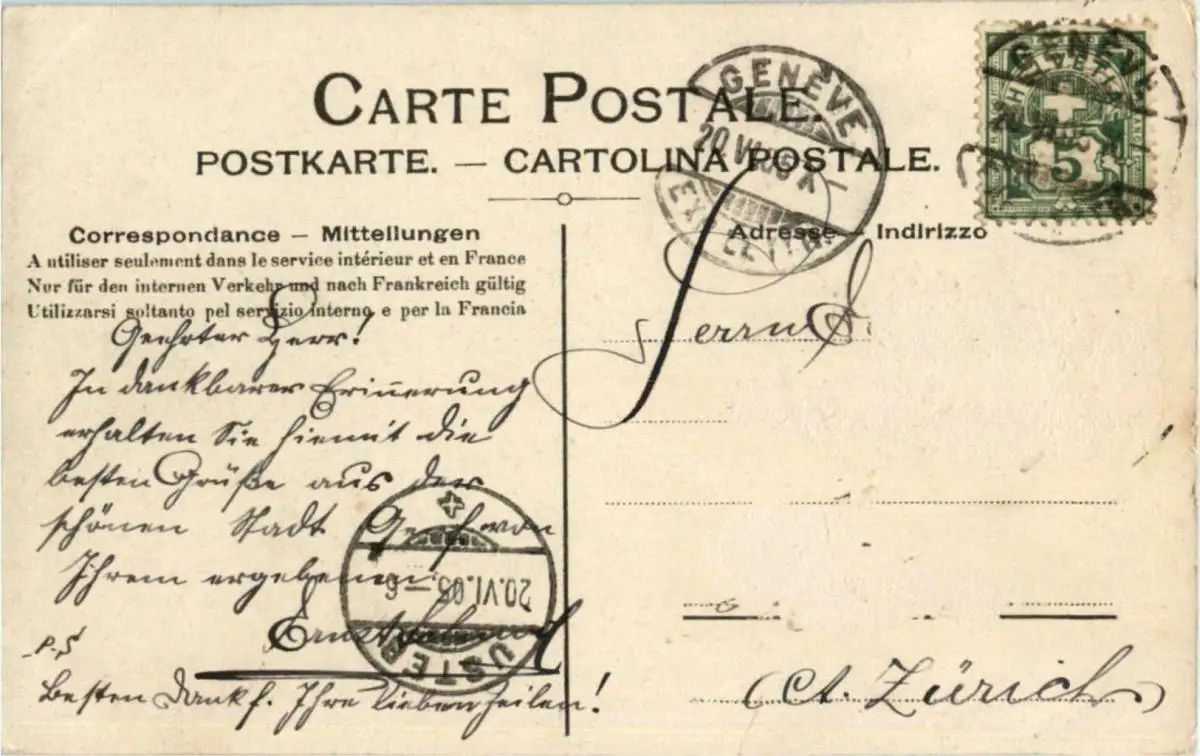 CARTE POSTALE.
POSTKARTE. — CARTOLINA POSTALE.
Correspondance — Mitteilungen
A utiliser seulement dans le service intérieur et en France
Nur für den internen Verkehr und nach Frankreich gültig
Utilizzarsi soltanto pel servizio interno e per la Francia
Geehrter Herr!
In dankbarer Erinnerung
erhalten Sie hiemit die
besten Grüße aus der
schönen Stadt Genf von
Ihrem ergebenen
Ernst
P.S
Besten Dank f. Ihre lieben Zeilen!
Adresse — Indirizzo
Herrn
Ct. Zürich
GENÈVE
20 VI 05
EXP. LETTR.
GENÈVE
HELVETIA
5
20.VI.05.-6
USTER